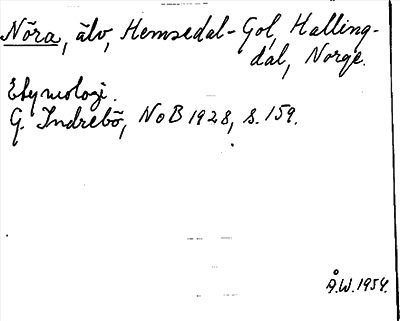 Nöra, älv, Hemsedal-Gol, Halling-
dal, Norge.
Etymologi.
G. Indrebö, NoB 1928, s. 159.
Å.W. 1954.